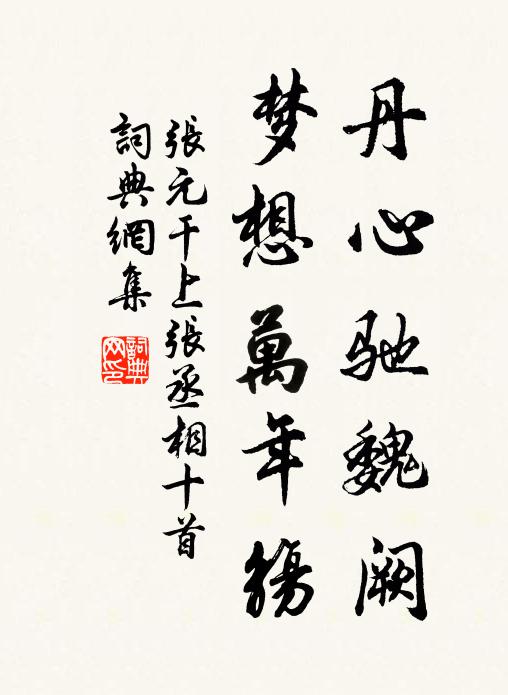 丹心驰魏阙
梦想萬年觴
張元干上張丞相十首
詞典網集
詞典
网印